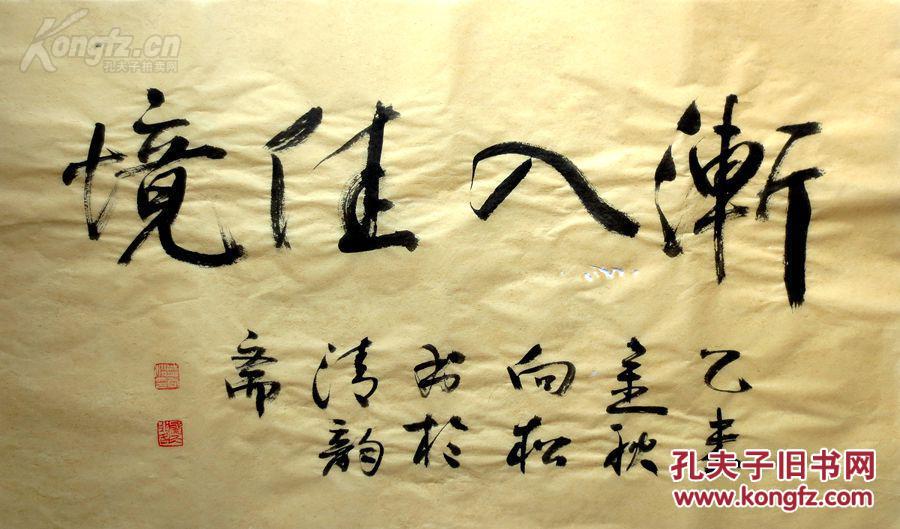 Kongfz.cn
孔夫子拍卖网
漸入佳境
乙
金秋
向松
书於
清韵
斋
孔夫子旧书网
www.kongfz.com